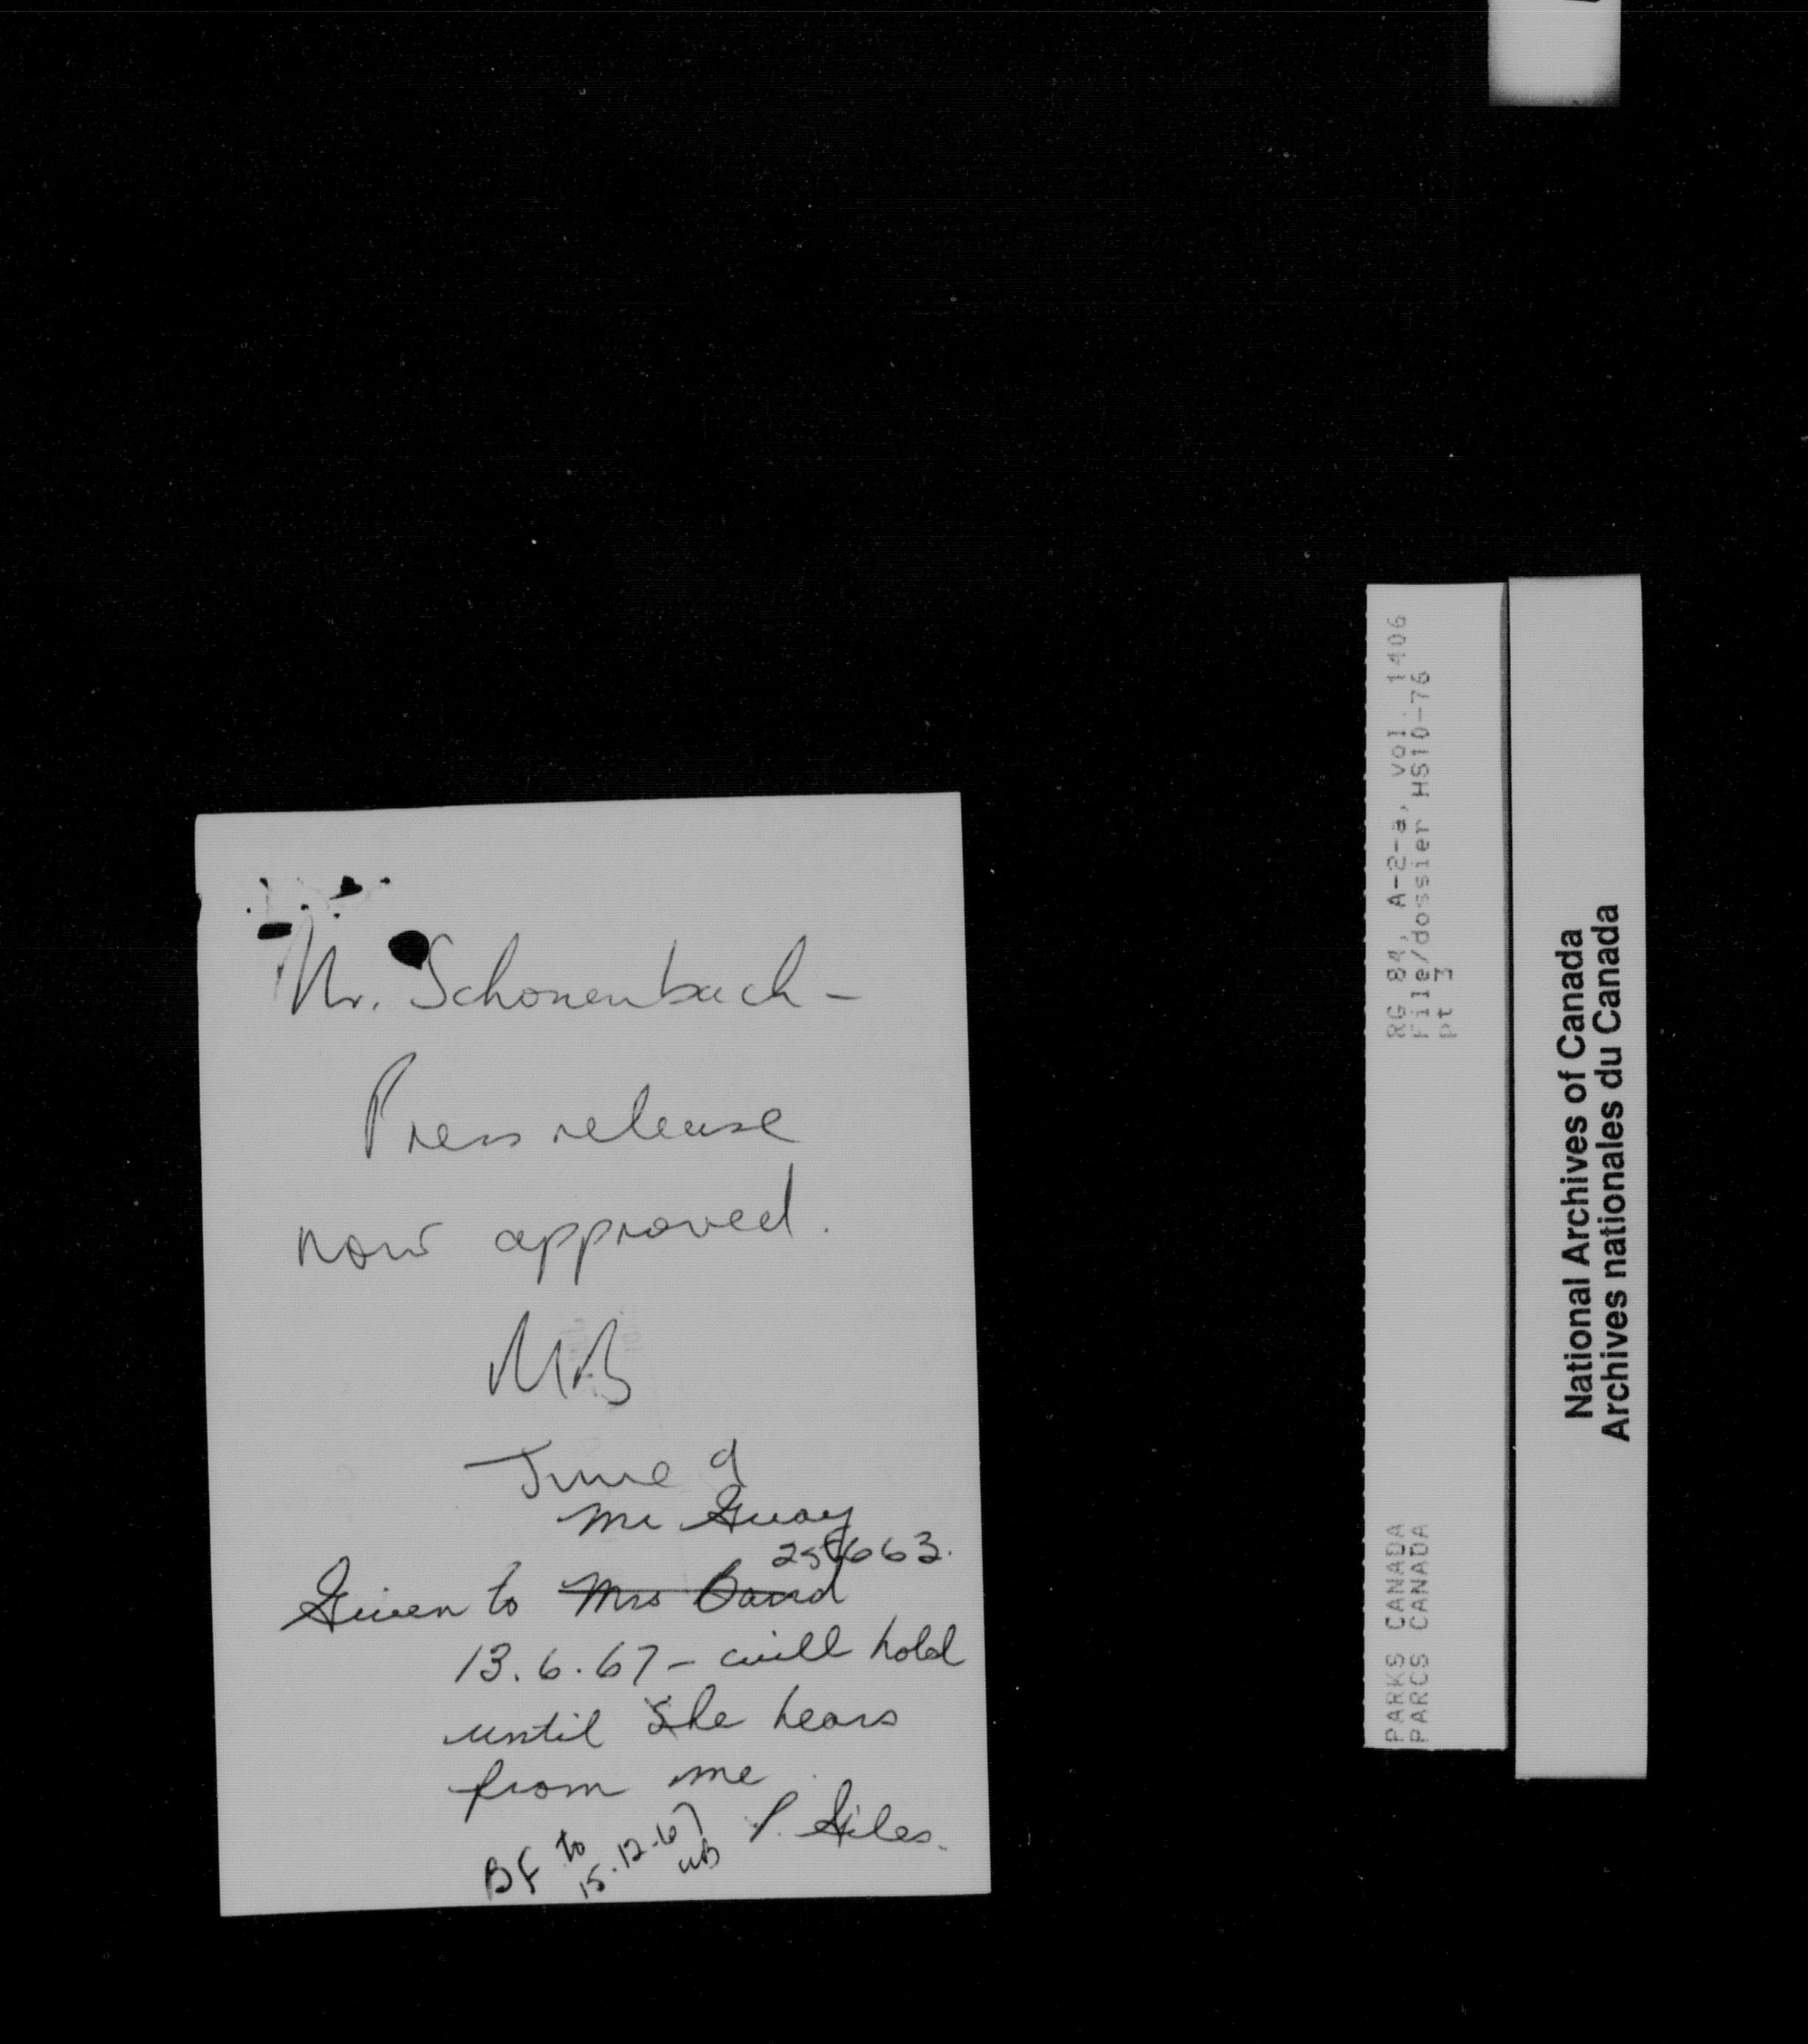 Mr. Schonenbach -
Press release
now approved.
MB
June 9
Mr Guay
Given to Mrs David
13.6.67 - will hold
until she hears
from me
P. Giles.
BF to
15.12.67
RG 84, A-2-a, vol. 1406
File/dossier HS10-76
pt 3
PARKS CANADA
PARCS CANADA
National Archives of Canada
Archives nationales du Canada